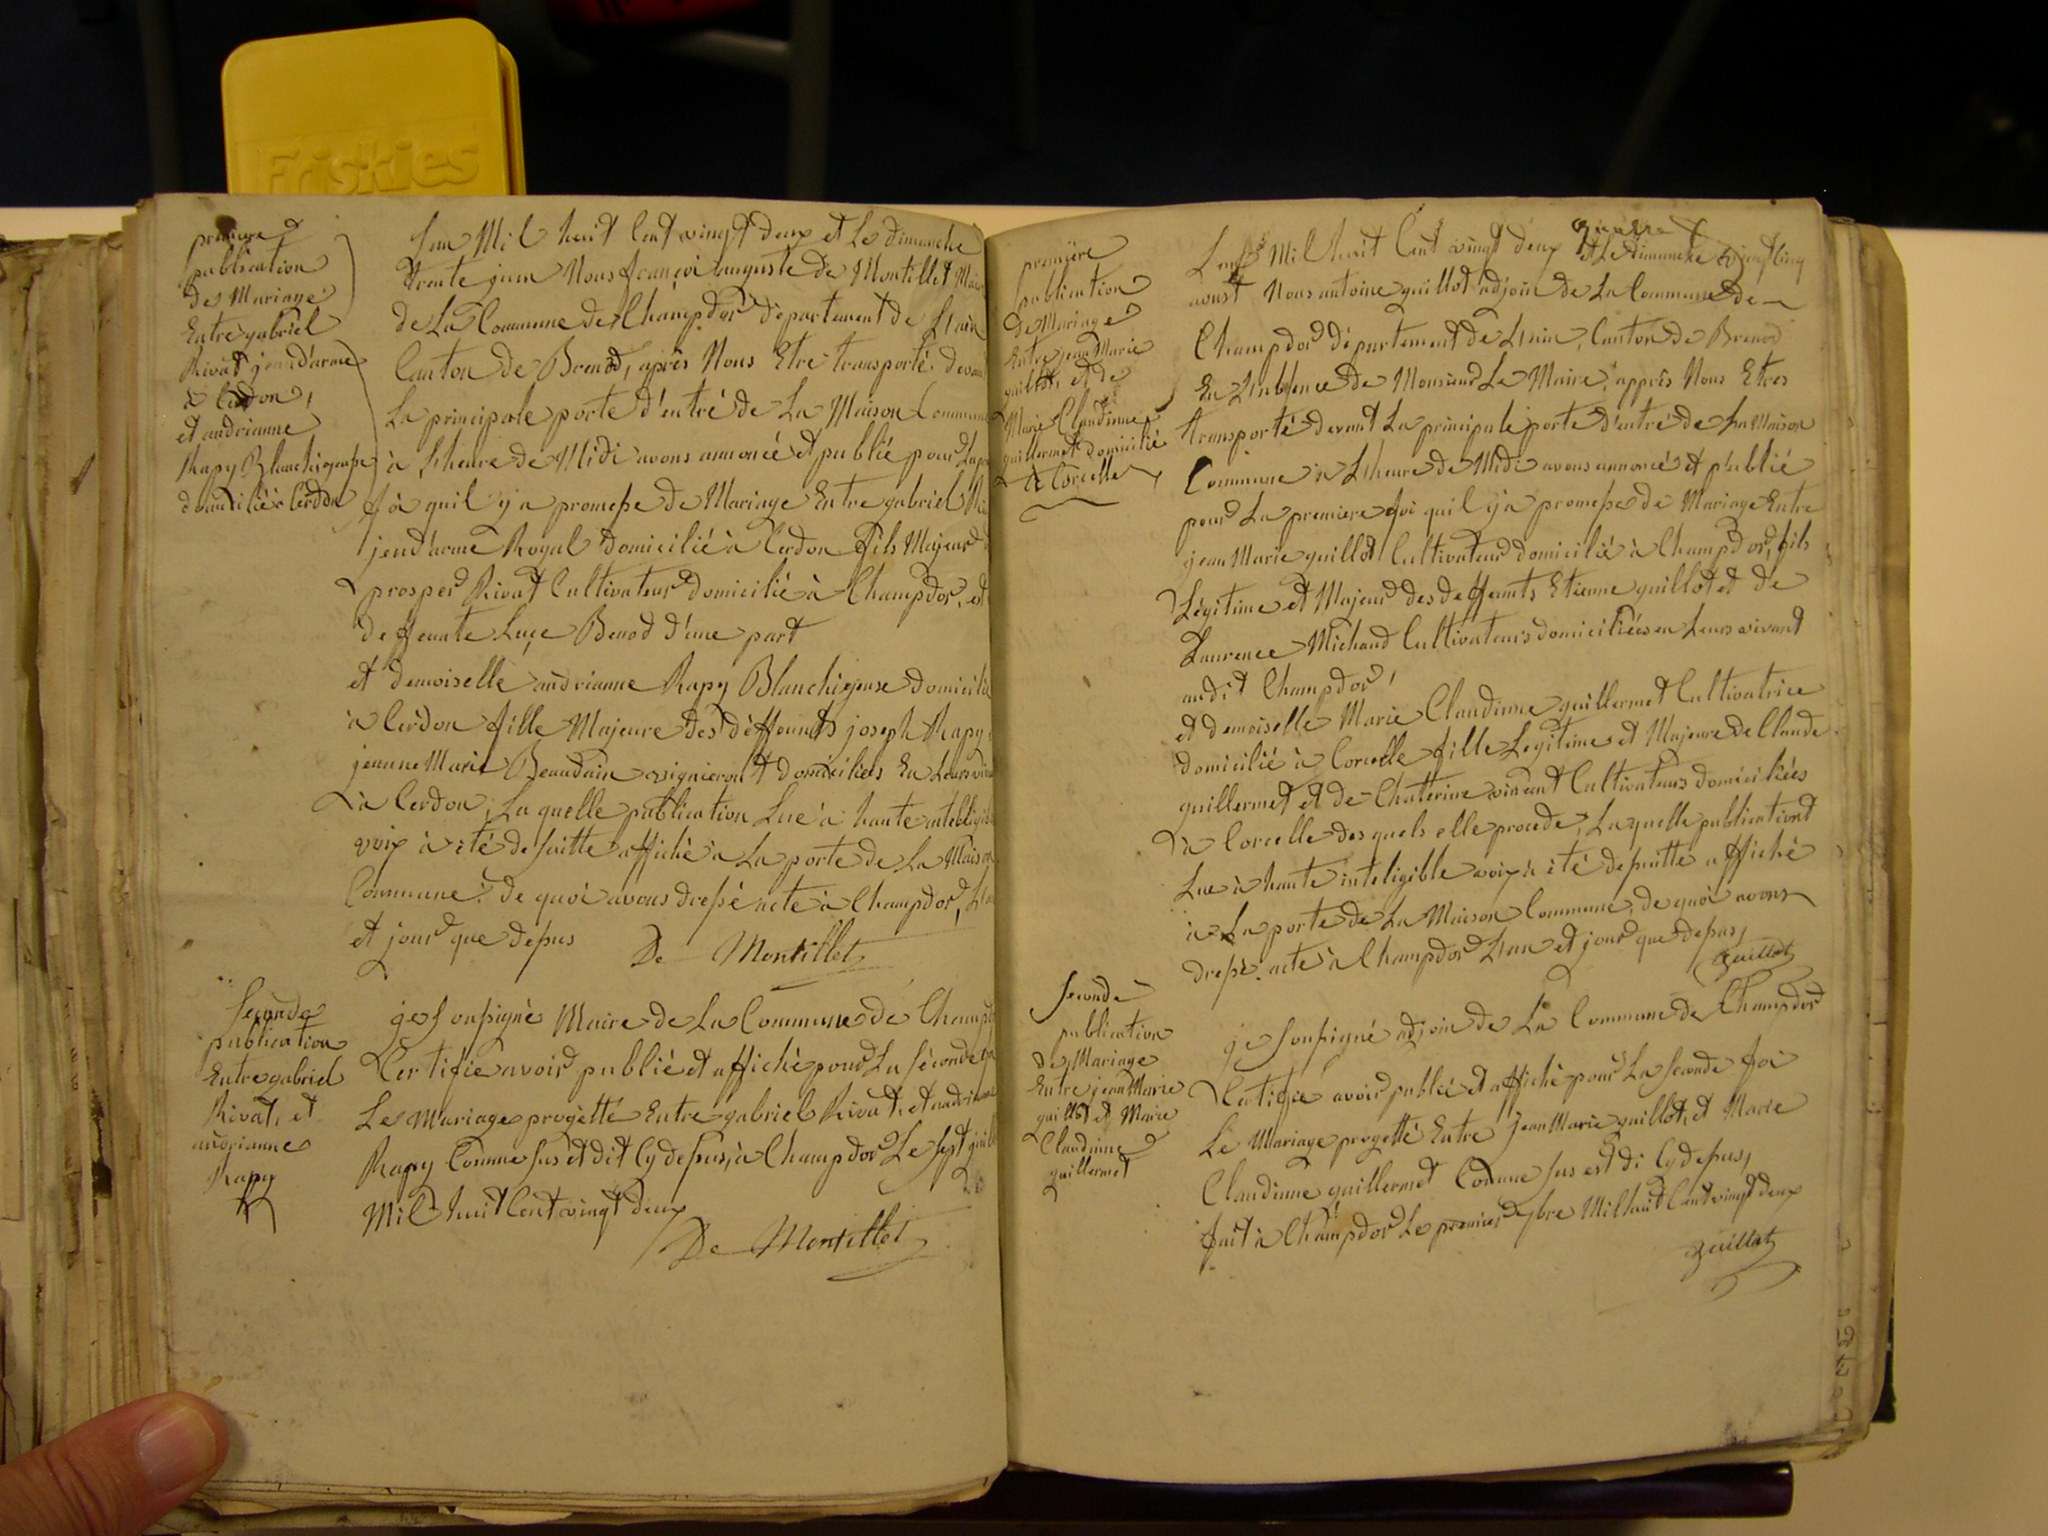 Friskies
premiere
publication
de Mariage
Entre gabriel
Rivat jendarme
à Cerdon,
et andrianne
Rapy Blanchigeuse
domicilié à Cerdon
Lan Mil huit Cent vingt deux et Le dimanche
trente juin Nous françoi auguste de Montillet
de La Commune de Champdor département de Lain
Canton de Brenod, après Nous Etre transporté devant
La principale porte d'entré de La Maison Commune
à Lheure de Midi avons annoncé et publié pour La
foi quil y a promesse de Mariage Entre gabriel
jend'arme Royal domicilié à Cerdon fils Majeur
prosper Rivat Cultivateur domicilié à Champdor, et
deffeunte Luçe Benod d'une part
et demoiselle andrianne Rapy Blanchigeuse domicilié
à Cerdon fille Majeure des deffeunts joseph Rapy
jeanne Marie Beaudain vigneront domiciliés En Leurs
à Cerdon, La quelle publication Lue à haute
voix à été de suitte affiché à La porte de La Maison
Commune. de quoi avons dressé acte à Champdor,
et jour que dessus De Montillet
Seconde
publication
Entre gabriel
Rivat, et
andrianne
Rapy
je Soussigné Maire de La Commune de
Certifie avoir publié et affiché pour La Séconde
Le Mariage progetté Entre gabriel Rivat, et andrianne
Rapy Comme sus et dit Cy dessus, à Champdor Le Sept
Mil huit Cent vingt deux
De Montillet
premiere
publication
de Mariage
Entre jean Marie
guillot, et de
Marie Claudinne
guillermet domicilié
à Corcelle
Lan Mil huit Cent vingt deux et Le dimanche vingt cinq
aoust Nous antoine guillot adjoin de La Commune de
Champdor département de Lain, Canton de Brenod
En Labsence de Monsieur Le Maire, apprès Nous Etres
transporté devant La principale porte d'entré de La Maison
Commune à Lheure de Midi avons annoncé et publié
pour La premiere foi quil y a promesse de Mariage Entre
jean Marie guillot Cultivateur domicilié à Champdor, fils
Légitime et Majeur des deffeunts Etienne guillot et de
Laurence Michaud Cultivateurs domiciliées en Leurs vivant
audit Champdor,
et demoiselle Marie Claudinne guillermet Cultivatrice
domicilié à Corcelle fille Legitime et Majeure de Claude
guillermet et de Chaterine vincent Cultivateurs domiciliées
à Corcelle des quels elle procede, La quelle publication
Lue à haute inteligible voix à été de suitte affiché
à La porte de La Maison Commune, de quoi avons
dressé acte à Champdor Lan et jour que dessus,
guillot
Seconde
publication
de Mariage
Entre jean Marie
guillot et Marie
Claudinne
guillermet
je Soussigné adjoin de La Commune de Champdor
Certifie avoir publié et affiché pour La Seconde foi
Le Mariage progetté Entre Jean Marie guillot, et Marie
Claudinne guillermet Comme sus est di Cy dessus,
fait à Champdor Le premier 7bre Mil huit Cent vingt deux
guillot